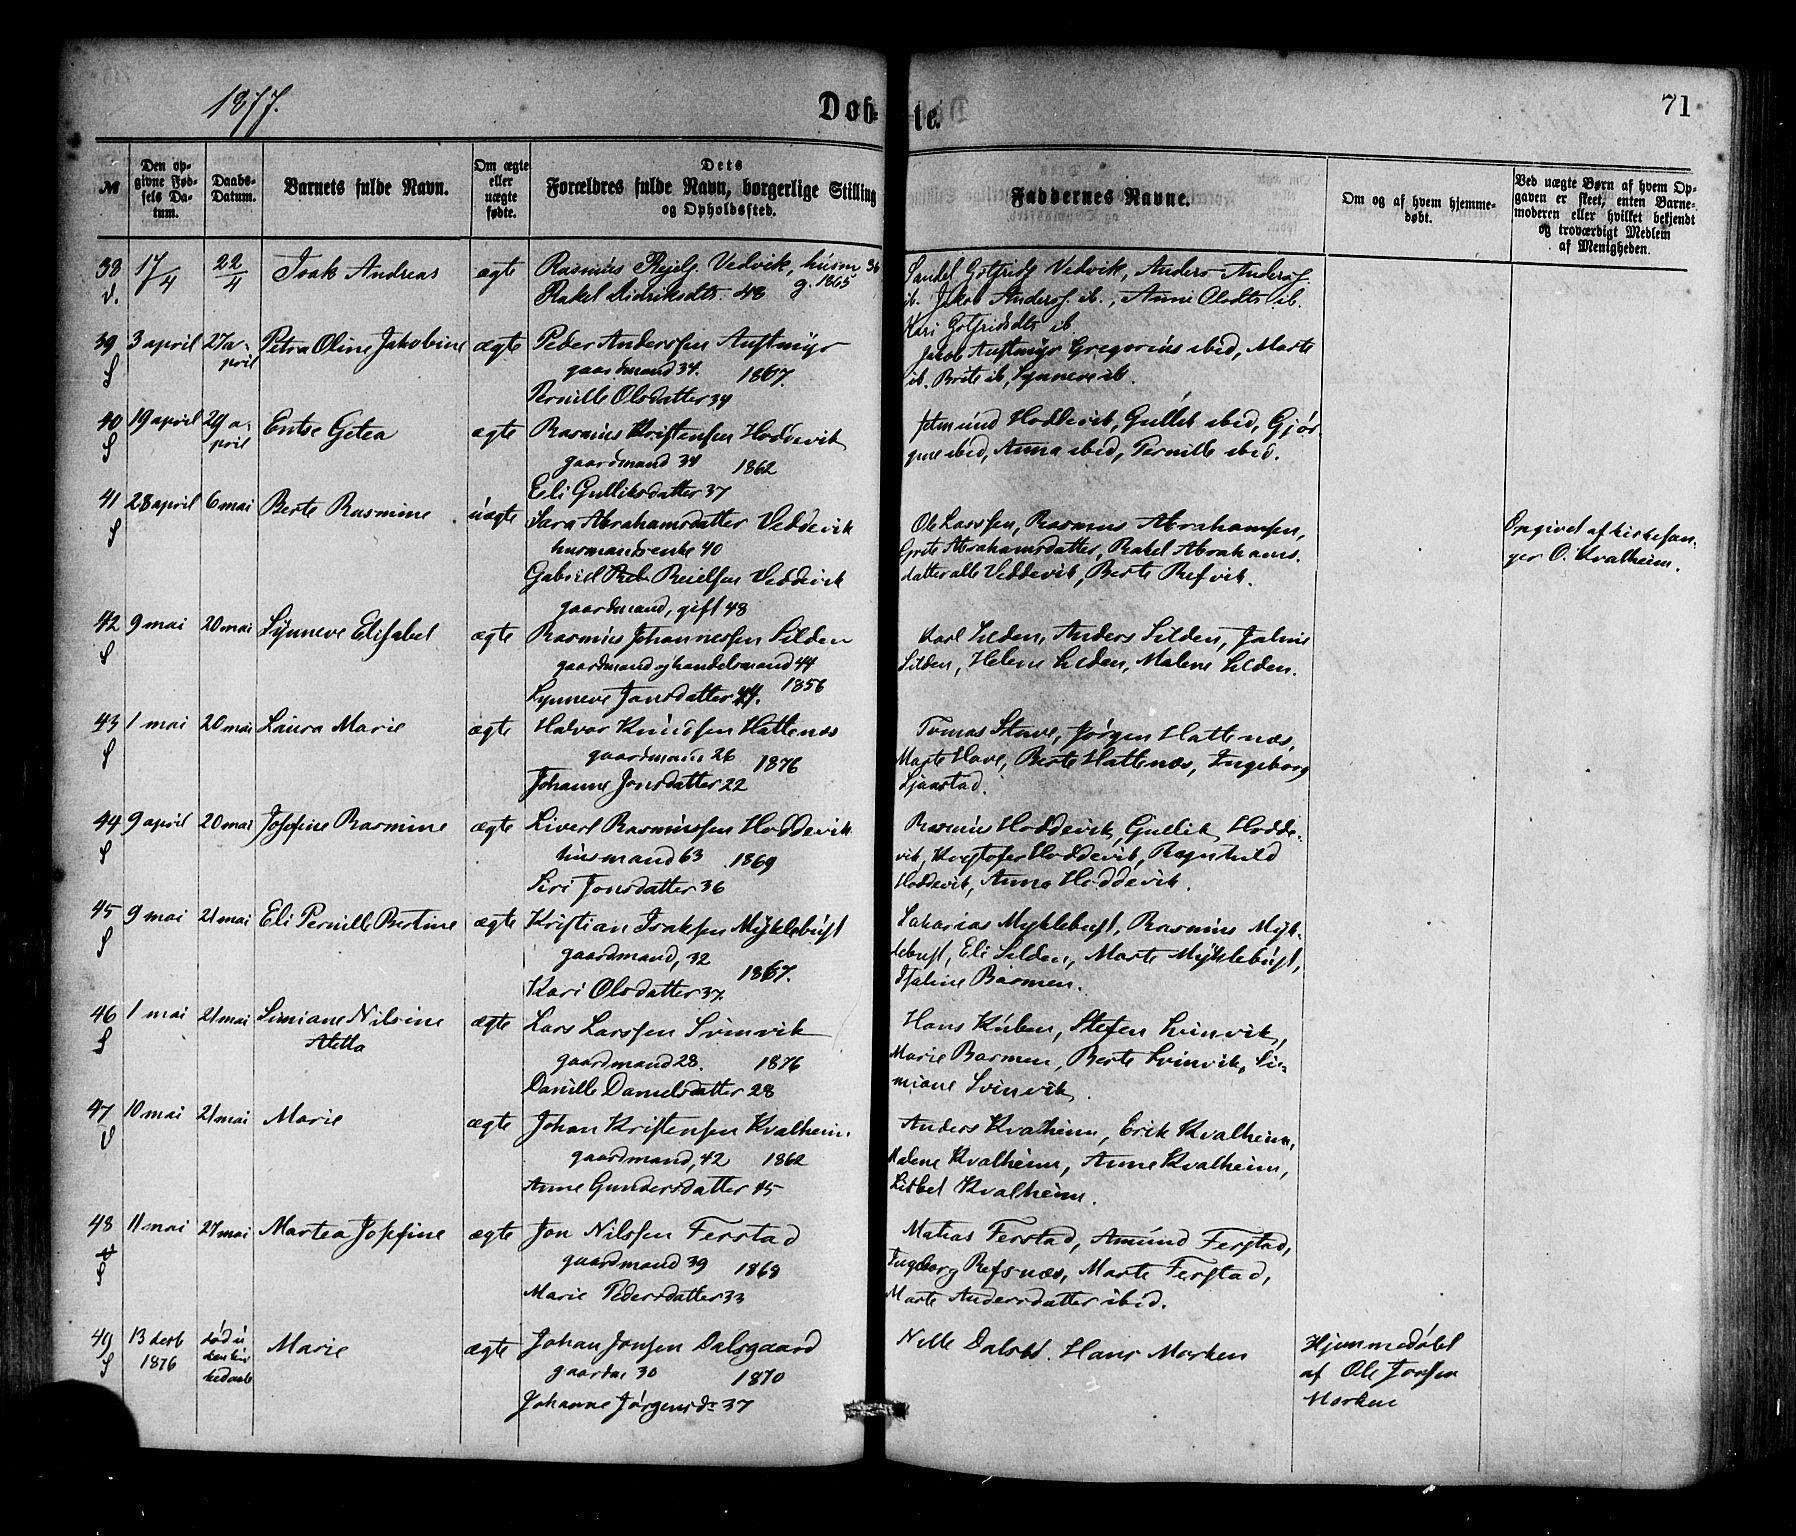 1877.
Døb-
te.
71
№
Den op-
givne Fød-
sels Da-
tum.
Daabs-
Datum.
Barnets fulde Navn.
Om ægte
eller
uægte
fødte.
Dets
Forældres fulde Navn, borgerlige Stilling
og Opholdssted.
Faddernes Navne.
Om og af hvem hjemme-
døbt.
Ved uægte Børn af hvem Op-
gaven er skeet, enten Barne-
moderen eller hvilket bekjendt
og troværdigt Medlem
af Menigheden.
38 17/4 22/4 Isak Andreas ægte Rasmus Rejels. Vedvik, husm. 36
g. 1865
Rakel Didriksdtr. 48
Sandel Gotfrids. Vedvik, Anders Anders.
ib. Jakob Anders. ib., Anne Olsdtr ib.
Kari Gotfridsdtr ib.
39 3 april 27 a-
pril Petra Oline Jakobine ægte Peder Anderssen Austmyr
S gaardmand 34. 1867.
Pernille Olsdatter 34
Jakob Austmyr Gregorius ibid, Marte
ib. Brite ib, Synneve ib.
40 19 april 29 a-
pril Entse Getea ægte Rasmus Kristensen Hoddevik
S gaardmand 34 1862
Eli Gulliksdatter 37
Hoddevik, Gullik ibid, Gjør-
gine ibid, Anna ibid, Pernille ibid.
41 28 april 6 mai Berte Rasmine uægte Sara Abrahamsdatter Veddevik
S husmandsenke 40
Gabriel Reielsen Veddevik
gaardmand, gift 48
Ole Larssen, Rasmus Abrahamsen,
Grete Abrahamsdatter, Rakel Abrahams-
datter alle Veddevik, Berte Refvik.
Opgivet af kirkesan-
ger O. Kvalheim.
42 9 mai 20 mai Synneve Elisabet ægte Rasmus Johannessen Silden
S gaardmand og handelsmand 44
1856
Synneve Jonsdatter 44.
Karl Silden, Anders Silden, Jaline
Silden, Helene Silden, Malene Silden.
43 1 mai 20 mai Laura Marie ægte Halvor Knudsen Hattenæs
S gaardmand 26 1876
Johanne Jonsdatter 22
Tomas Stave, Jørgen Hattenæs,
Marte Hove, Berte Hattenæs, Ingeborg
Ljanstad.
44 9 april 20 mai Josefine Rasmine ægte Sivert Rasmussen Hoddevik
S husmand 63 1869
Siri Jonsdatter 36
Rasmus Hoddevik, Gullik Hodde-
vik, Kristofer Hoddevik, Ragnhild
Hoddevik, Anna Hoddevik.
45 9 mai 21 mai Eli Pernille Bertine ægte Kristian Isaksen Myklebust
S gaardmand, 32
1867.
Kari Olsdatter 37
Sakarias Myklebust, Rasmus Myk-
lebust, Eli Silden, Marte Myklebust,
Barmen.
46 1 mai 21 mai Simiane Nilsine ægte Lars Larssen Svinvik
S Aletta
gaardmand 28. 1876
Danille Danielsdatter 28
Hans Kuben, Stefen Svinvik,
Marie Barmen, Berte Svinvik, Si-
miane Svinvik.
47 10 mai 21 mai Marie ægte Johan Kristensen Kvalheim
gaardmand, 42 1862
Anne Gundersdatter 45
Anders Kvalheim, Erik Kvalheim,
Malene Kvalheim, Anne Kvalheim,
Lisbet Kvalheim.
48 11 mai 27 mai Martea Josefine ægte Jon Nilssen Ferstad
gaardmand 39 1868
Marie Pedersdatter 33
Matias Ferstad, Amund Ferstad,
Ingeborg Refsnæs, Marte Ferstad,
Marte Andersdatter ibid.
49 13 desb
1876 død u-
den kir-
kedaab Marie ægte Johan Jonsen Dalsgaard
S gaardm 30 1870
Johanne Jørgensdr 37
Nille Dalsbø. Hans Morken
Hjemmedøbt
af Ole Jonsen
Morken